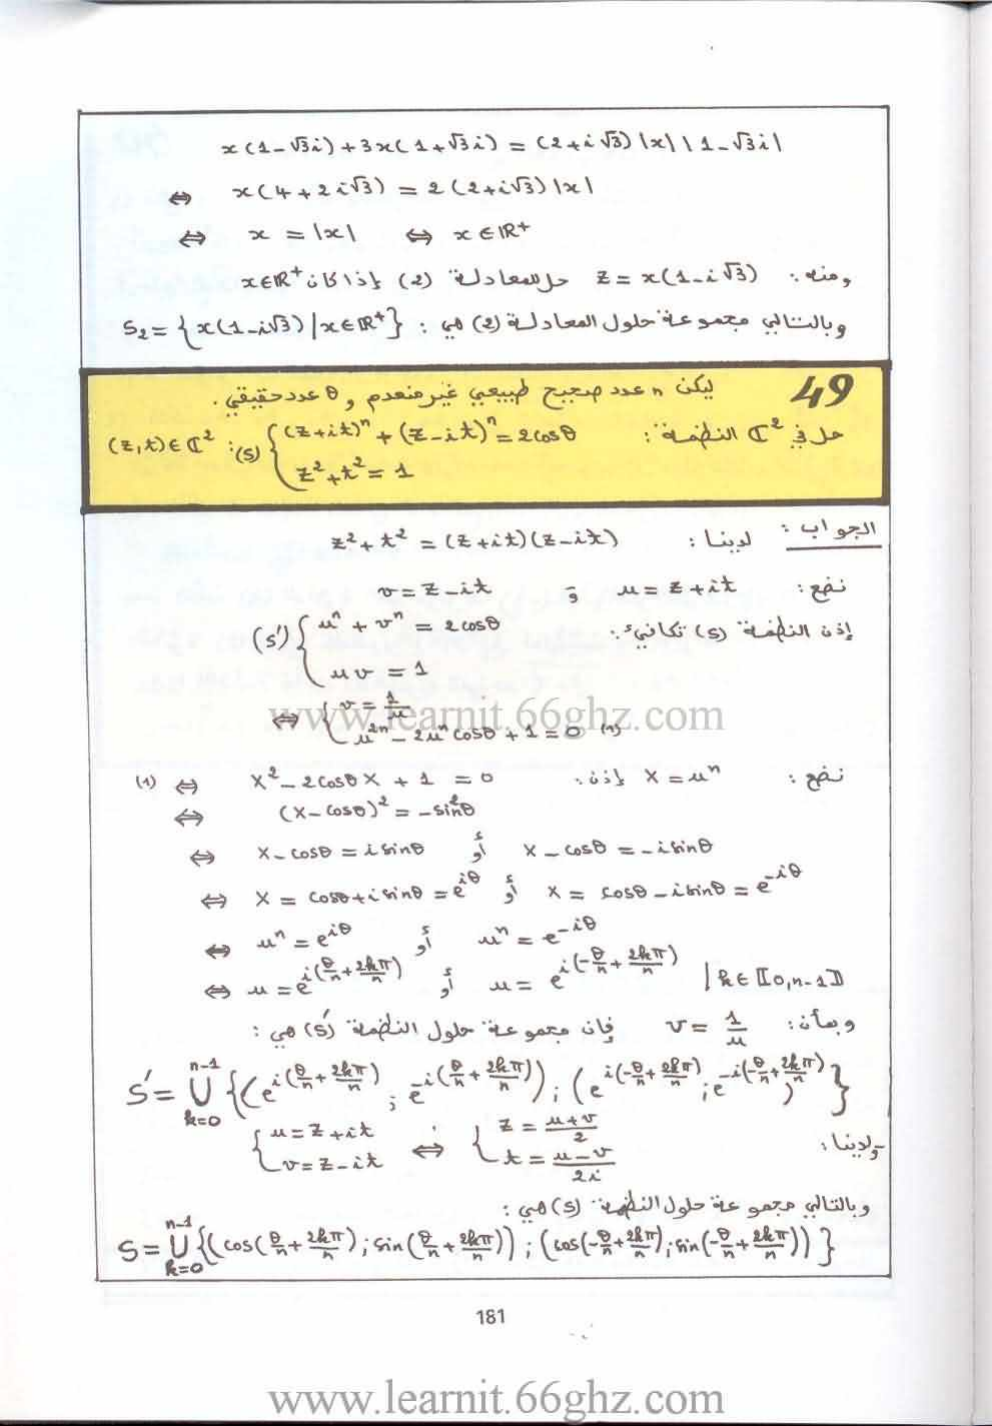 x(1-√3i)+3x(1+√3i) = (2+i√3)|x||1-√3i|
⇔ x(4+2i√3) = 2(2+i√3)|x|
⇔ x = |x| ⇔ x∈ℝ⁺
ومنه : z = x(1-i√3) حل للمعادلة (2) إذا كان x∈ℝ⁺
وبالتالي مجموعة حلول المعادلة (2) هي : S₂ = {x(1-i√3) | x∈ℝ⁺}
49 ليكن n عدد صحيح طبيعي غير منعدم و θ عدد حقيقي .
حل في ℂ² النظمة : (S): { (z+it)ⁿ + (z-it)ⁿ = 2cosθ (z,t)∈ℂ²
z²+t² = 1
الجواب : لدينا : z²+t² = (z+it)(z-it)
نضع : u = z+it و v = z-it
إذن النظمة (S) تكافئ : (S') { uⁿ + vⁿ = 2cosθ
uv = 1
⇔ { v = 1/u
u²ⁿ - 2uⁿcosθ + 1 = 0 (1)
www.learnit.66ghz.com
نضع : X = uⁿ إذن : (1) ⇔ X² - 2cosθX + 1 = 0
⇔ (X-cosθ)² = -sin²θ
⇔ X-cosθ = isinθ أو X-cosθ = -isinθ
⇔ X = cosθ+isinθ = e^{iθ} أو X = cosθ-isinθ = e^{-iθ}
⇔ uⁿ = e^{iθ} أو uⁿ = e^{-iθ}
⇔ u = e^{i(θ/n + 2kπ/n)} أو u = e^{i(-θ/n + 2kπ/n)} | k∈⟦0,n-1⟧
وبما أن : v = 1/u فإن مجموعة حلول النظمة (S') هي :
S' = ⋃_{k=0}^{n-1} {(e^{i(θ/n + 2kπ/n)} ; e^{-i(θ/n + 2kπ/n)}) ; (e^{i(-θ/n + 2kπ/n)} ; e^{-i(-θ/n + 2kπ/n)})}
ولدينا : { u = z+it ⇔ { z = (u+v)/2
v = z-it t = (u-v)/2i
وبالتالي مجموعة حلول النظمة (S) هي :
S = ⋃_{k=0}^{n-1} {(cos(θ/n + 2kπ/n) ; sin(θ/n + 2kπ/n)) ; (cos(-θ/n + 2kπ/n) ; sin(-θ/n + 2kπ/n))}
181
www.learnit.66ghz.com